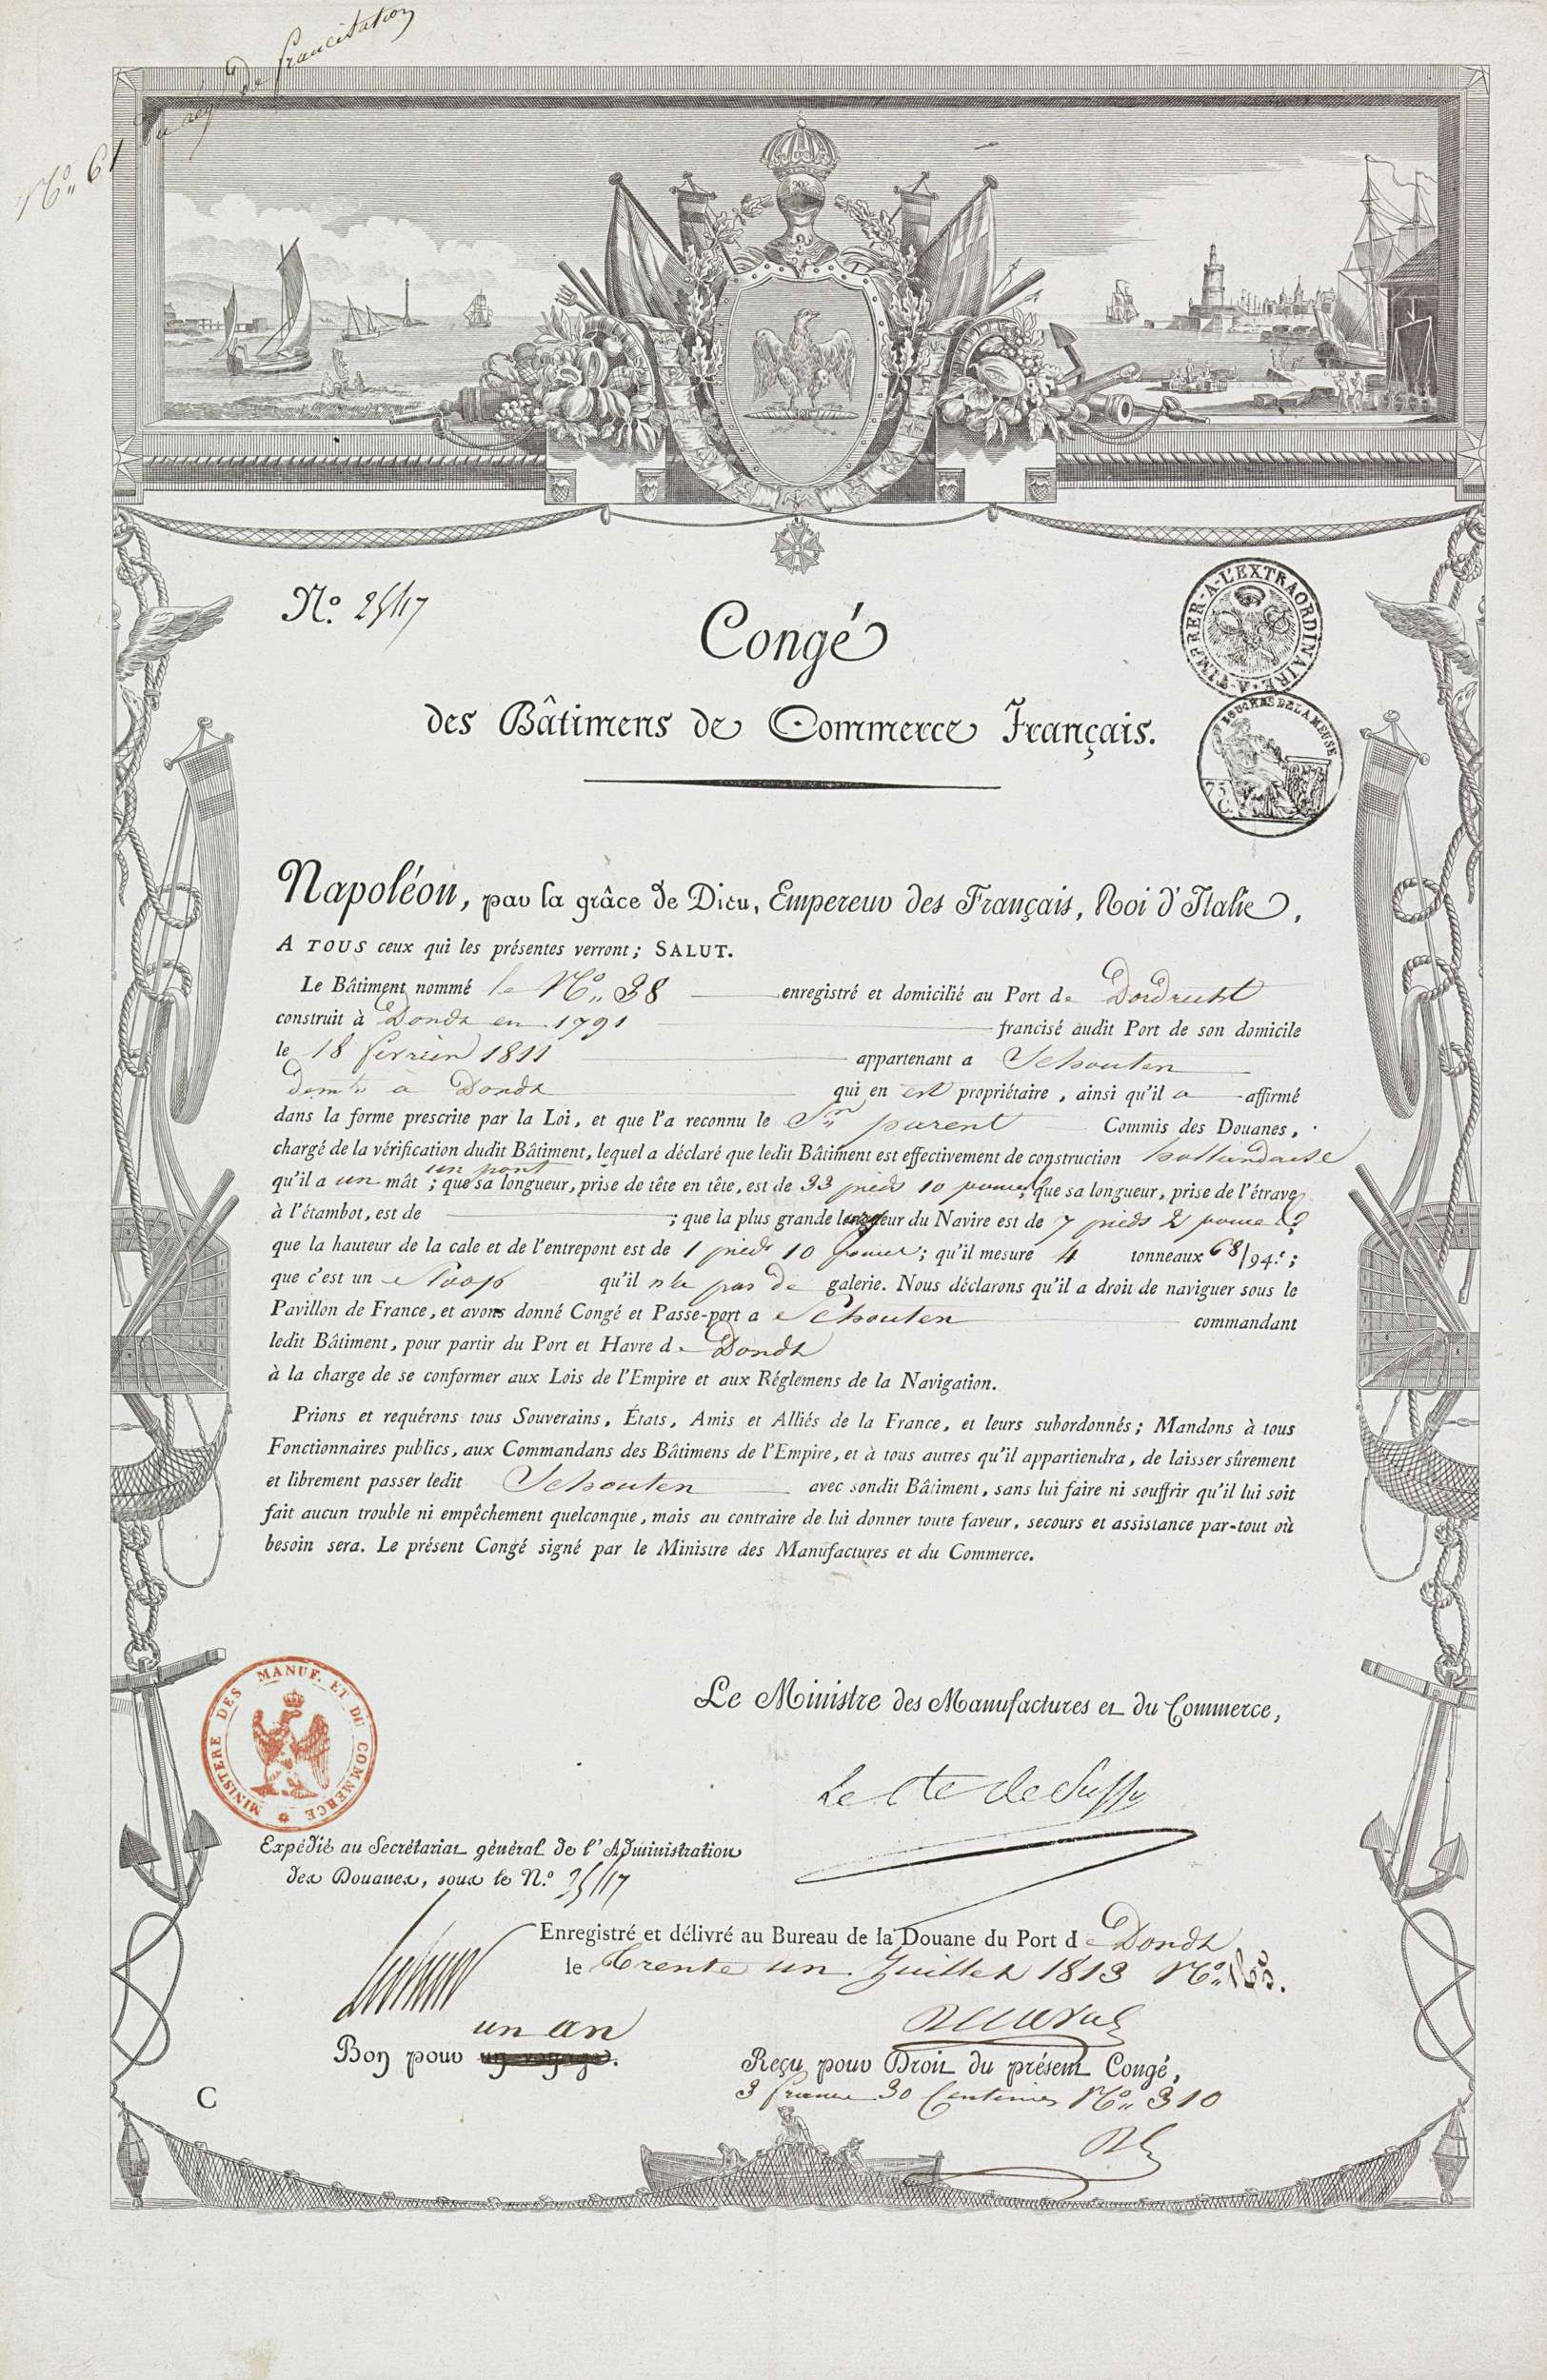 N.º 61 du reg. de francisation
N.º 25417
A TIMBRER A L'EXTRAORDINAIRE
BOUCHES DE LA MEUSE
75 C.
Congé
des Bâtimens de Commerce Français.
Napoléon, par la grâce de Dieu, Empereur des Français, Roi d'Italie,
A TOUS ceux qui les présentes verront; SALUT.
Le Bâtiment nommé le N.º 38 enregistré et domicilié au Port de Dordrecht
construit à Dordt en 1791 francisé audit Port de son domicile
le 18 fevrier 1811 appartenant a Schouten
demt à Dordt qui en est propriétaire, ainsi qu'il a affirmé
dans la forme prescrite par la Loi, et que l'a reconnu le Sr parent Commis des Douanes,
chargé de la vérification dudit Bâtiment, lequel a déclaré que ledit Bâtiment est effectivement de construction hollandaise
un pont
qu'il a un mât; que sa longueur, prise de tête en tête, est de 33 pieds 10 pouces; que sa longueur, prise de l'étrave
à l'étambot, est de ; que la plus grande largeur du Navire est de 7 pieds 2 pouces
que la hauteur de la cale et de l'entrepont est de 1 pieds 10 pouces; qu'il mesure 4 tonneaux 68/94.s;
que c'est un Sloop qu'il n'a pas de galerie. Nous déclarons qu'il a droit de naviguer sous le
Pavillon de France, et avons donné Congé et Passe-port a Schouten commandant
ledit Bâtiment, pour partir du Port et Havre de Dordt
à la charge de se conformer aux Lois de l'Empire et aux Réglemens de la Navigation.
Prions et requérons tous Souverains, États, Amis et Alliés de la France, et leurs subordonnés; Mandons à tous
Fonctionnaires publics, aux Commandans des Bâtimens de l'Empire, et à tous autres qu'il appartiendra, de laisser sûrement
et librement passer ledit Schouten avec sondit Bâtiment, sans lui faire ni souffrir qu'il lui soit
fait aucun trouble ni empêchement quelconque, mais au contraire de lui donner toute faveur, secours et assistance par-tout où
besoin sera. Le présent Congé signé par le Ministre des Manufactures et du Commerce.
MINISTERE DES MANUF. ET DU COMMERCE
Le Ministre des Manufactures et du Commerce,
Le Cte de Sussy
Expédié au Secrétariat général de l'Administration
des Douanes, sous le N.º 25417
Enregistré et délivré au Bureau de la Douane du Port de Dordt
le trente un Juillet 1813 N.º
un an
Bon pour un voyage.
Reçu pour Droit du présent Congé,
3 francs 30 Centimes N.º 310
C